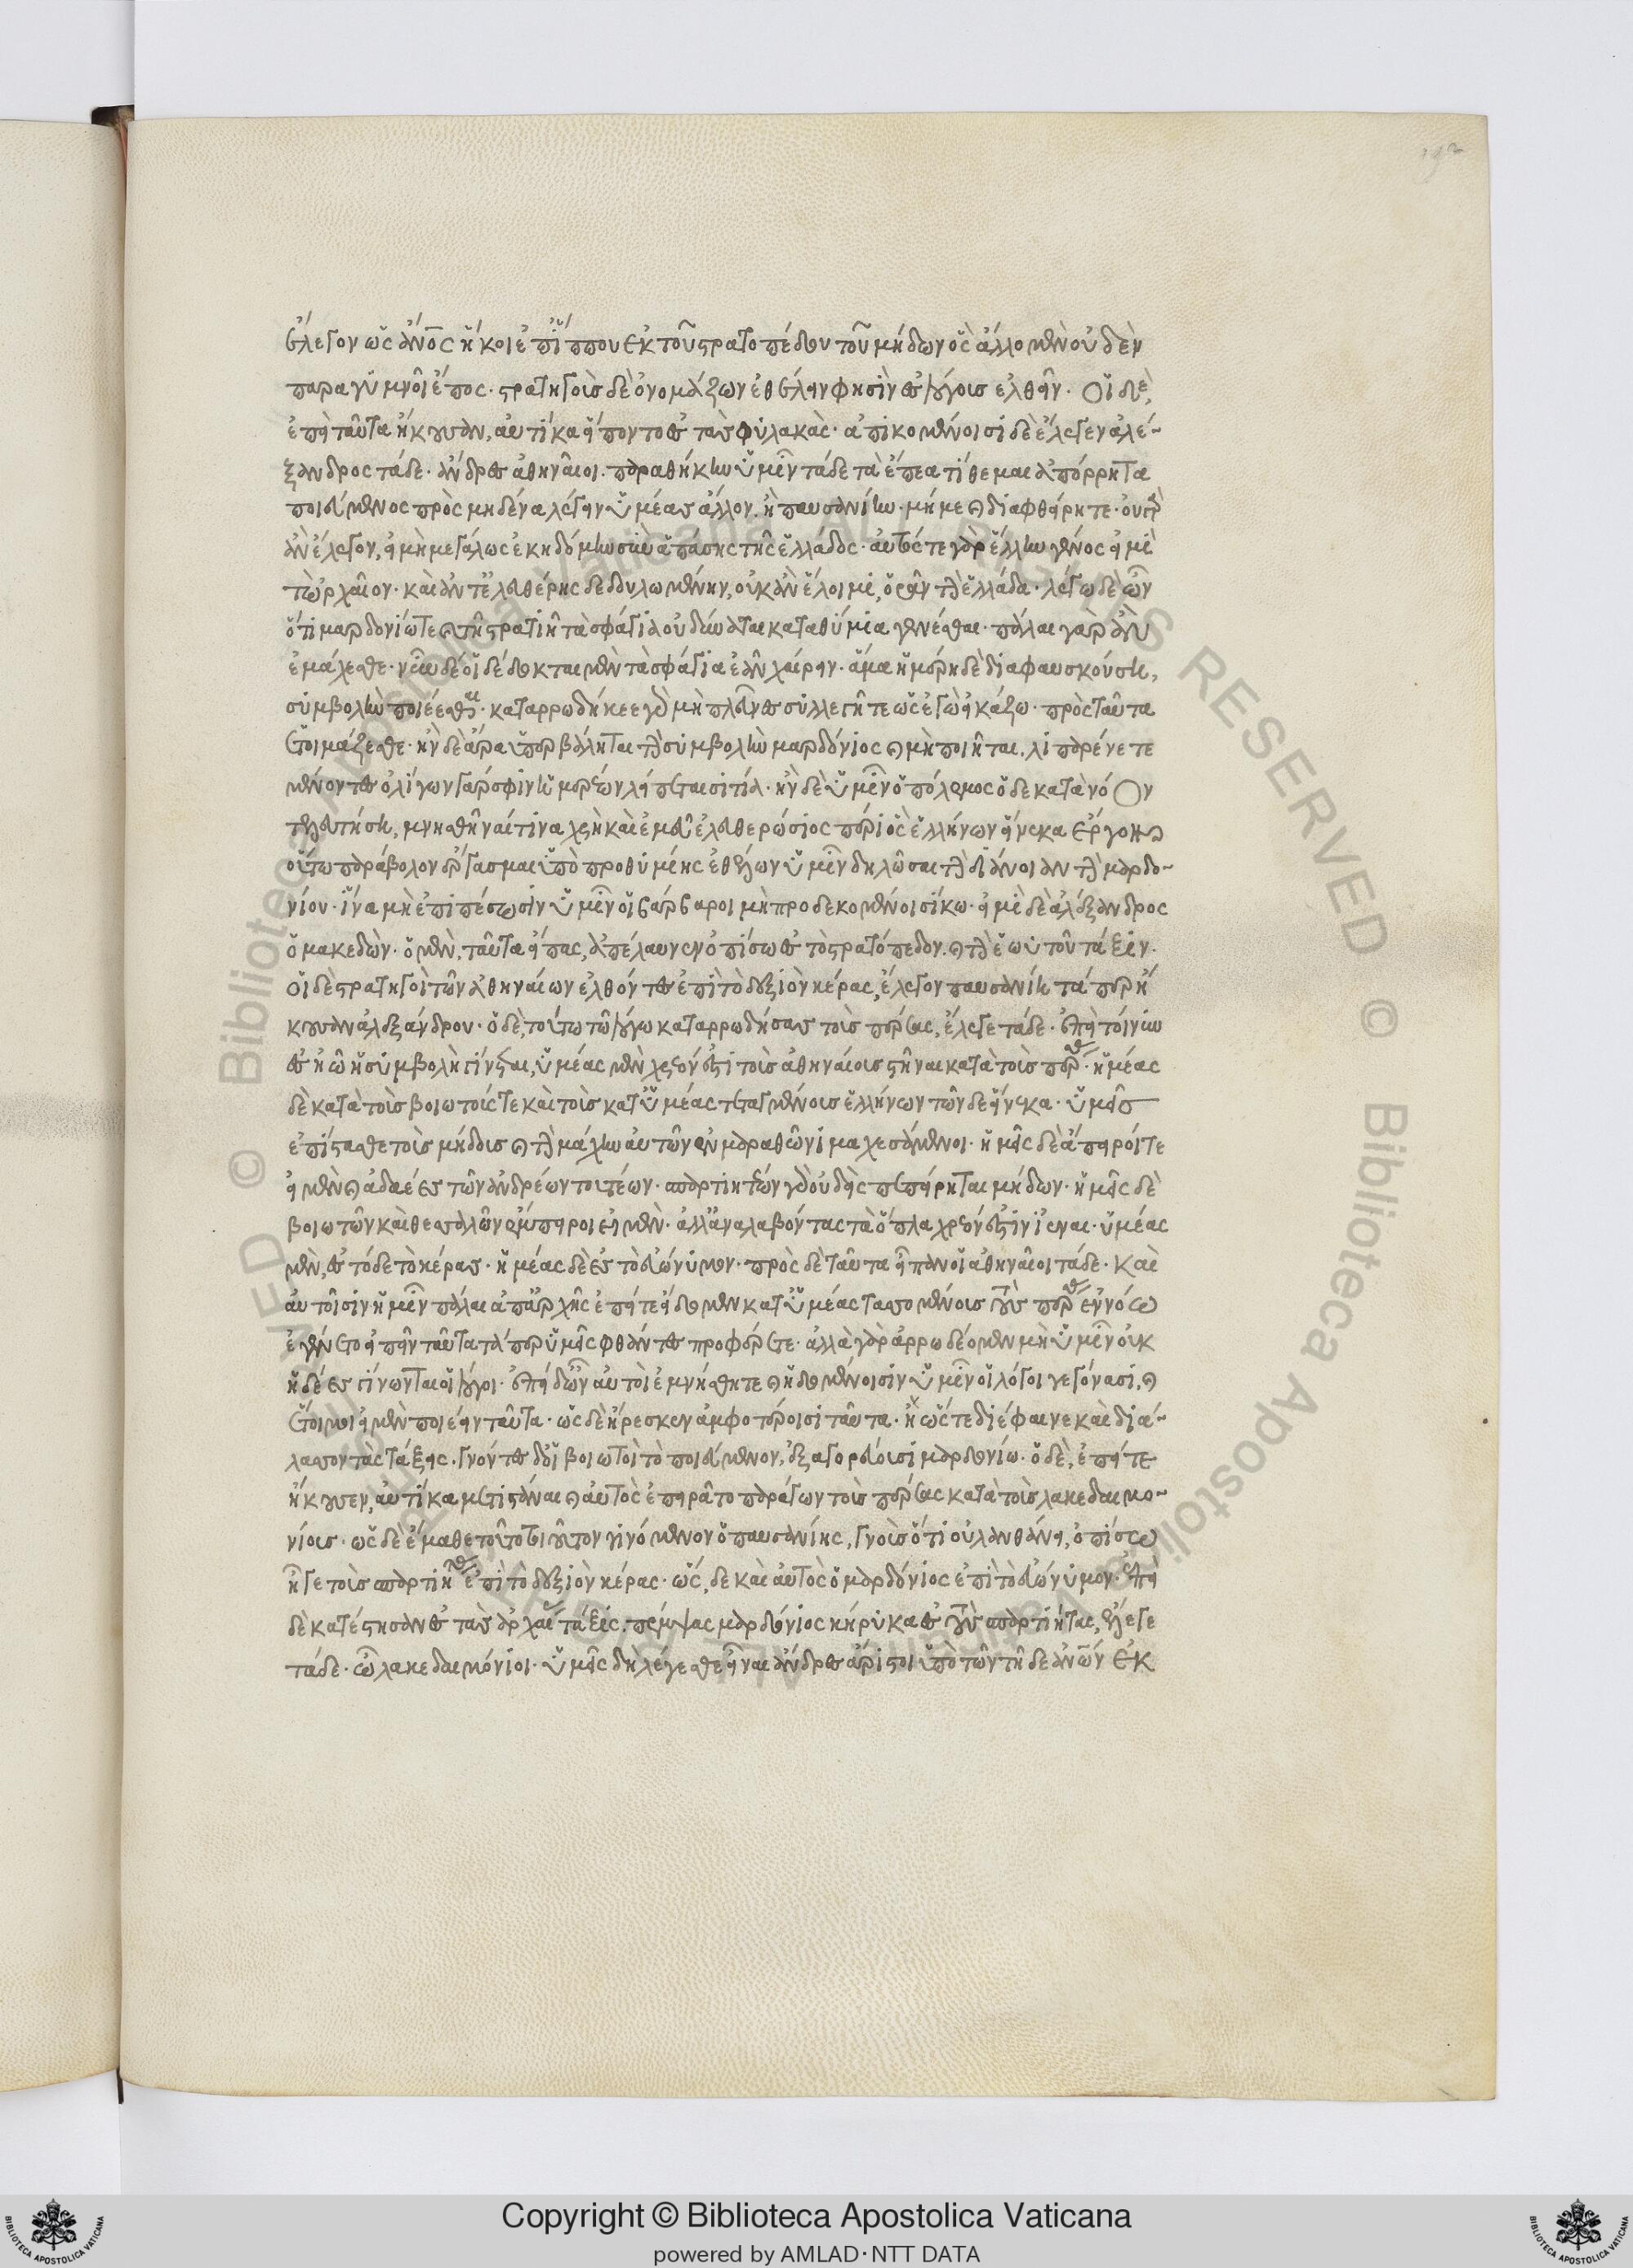 ἔλεγον ὡς ἄνο̅ς ἥκοι ἐπ' ἵππου ἐκ τοῦ στρατοπέδου τοῦ μήδων· ὃς ἄλλο μὲν οὐδὲν
παραγυμνοῖ ἔπος· στρατηγοὺς δὲ ὀνομάζων ἐθέλειν φησὶν ἐς λόγους ἐλθεῖν. Οἱ δὲ,
ἐπεὶ ταῦτα ἤκουσαν, αὐτίκα εἵποντο ἐς τὰς φυλακάς· ἀπικομένοισι δὲ ἔλεγεν ἀλέ-
ξανδρος τάδε· ἄνδρες ἀθηναῖοι· παραθήκην ὑμῖν τάδε τὰ ἔπεα τίθεμαι ἀπόρρητα
ποιεύμενος πρὸς μηδένα λέγειν ὑμέας ἄλλον, ἢ παυσανίην· μή με καὶ διαφθάρητε· οὐ γὰρ
ἂν ἔλεγον, εἰ μὴ μεγάλως ἐκηδόμην συναπάσης τῆς ἑλλάδος· αὐτός τε γὰρ ἕλλην γένος εἰμὶ
τὠρχαῖον· καὶ ἀντ' ἐλευθέρης δεδουλωμένην, οὐκ ἂν ἐθέλοιμι, ὁρᾶν τὴν ἑλλάδα· λέγω δὲ ὦν
ὅτι μαρδονίω τε καὶ τῇ στρατιῇ τὰ σφάγια οὐ δύναται καταθύμια γενέσθαι· πάλαι γὰρ ἂν
ἐμάχεσθε· νῦν δέ οἱ δέδοκται μὲν τὰ σφάγια ἐᾶν χαίρειν· ἅμα ἡμέρη δὲ διαφαυσκούση,
συμβολὴν ποιέεσθαι· καταρρώδηκε γὰρ μὴ πλεῦνες συλλεγῆτε ὡς ἐγὼ εἰκάζω· πρὸς ταῦτα
ἑτοιμάζεσθε· ἢν δὲ ἄρα ὑπερβάληται τὴν συμβολὴν μαρδόνιος καὶ μὴ ποιῆται, λιπαρέετε
μένοντες ὀλίγων γάρ σφιν ἡμερέων λείπεται σιτία· ἢν δὲ ὑμῖν ὁ πόλεμος ὅδε κατὰ νόον
τελευτήση, μνησθῆναί τινα χρὴ καὶ ἐμεῦ ἐλευθερώσιος πέρι· ὃς ἑλλήνων εἵνεκα ἔργον
οὕτω παράβολον ἔργασμαι ὑπὸ προθυμίης ἐθέλων ὑμῖν δηλῶσαι τὴν διάνοιαν τὴν μαρδο-
νίου· ἵνα μὴ ἐπιπέσωσιν ὑμῖν οἱ βάρβαροι μὴ προδεκομένοισί κω· εἰμὶ δὲ ἀλέξανδρος
ὁ μακεδών· ὁ μὲν, ταῦτα εἴπας, ἀπέλαυνεν ὀπίσω ἐς τὸ στρατόπεδον καὶ τὴν ἑωυτοῦ τάξιν.
οἱ δὲ στρατηγοὶ τῶν ἀθηναίων ἐλθόντες ἐπὶ τὸ δεξιὸν κέρας, ἔλεγον παυσανίη τά περ ἤ
κουσαν ἀλεξάνδρου· ὁ δὲ, τούτω τῷ λόγω καταρρωδήσας τοὺς πέρσας, ἔλεγε τάδε· ἐπεὶ τοίνυν
ἐς ἠῶ ἡ συμβολὴ γίνεται, ὑμέας μὲν χρεόν ἐστι τοὺς ἀθηναίους στῆναι κατὰ τοὺς πέρσ· ἡμέας
δὲ κατὰ τοὺς βοιωτούς τε καὶ τοὺς κατ' ὑμέας τεταγμένους ἑλλήνων τῶνδε εἵνεκα· ὑμεῖς
ἐπίστασθε τοὺς μήδους καὶ τὴν μάχην αὐτῶν ἐν μαραθῶνι μαχεσάμενοι· ἡμεῖς δὲ ἄπειροί τε
εἰμὲν καὶ ἀδαέες τῶν ἀνδρέων τουτέων· σπαρτιητέων γὰρ οὐδεὶς πεπείρηται μήδων· ἡμεῖς δὲ
βοιωτῶν καὶ θεσσαλῶν ἔμπειροι εἰμὲν· ἀλλ' ἀναλαβόντας τὰ ὅπλα χρεόν ἐστιν ἰέναι· ὑμέας
μὲν, ἐς τόδε τὸ κέρας· ἡμέας δὲ ἐς τὸ εὐώνυμον· πρὸς δὲ ταῦτα εἶπαν οἱ ἀθηναῖοι τάδε· Καὶ
αὐτοῖσιν ἡμῖν πάλαι ἀπ' ἀρχῆς ἐπεί τε εἴδομεν κατ' ὑμέας τασσομένους τοὺς πέρσ ἐν νόω
ἐγένετο εἰπεῖν ταῦτα τά περ ὑμεῖς φθάντες προφέρετε· ἀλλὰ γὰρ ἀρρωδέομεν μὴ ὑμῖν οὐκ
ἡδέες γίνωνται οἱ λόγοι· ἐπεὶ δ' ὦν αὐτοὶ ἐμνήσθητε καὶ ἡδομένοισιν ὑμῖν οἱ λόγοι γεγόνασι, καὶ
ἕτοιμοι εἰμὲν ποιέειν ταῦτα· ὡς δὲ ἤρεσκεν ἀμφοτέροισι ταῦτα· ἠώς τε διέφαινε καὶ διά-
λασσον τὰς τάξεις· γνόντες δὲ οἱ βοιωτοὶ τὸ ποιεύμενον, ἐξαγορεύουσι μαρδονίω· ὁ δὲ, ἐπεί τε
ἤκουσεν, αὐτίκα μετιστάναι καὶ αὐτὸς ἐπειρᾶτο παράγων τοὺς πέρσας κατὰ τοὺς λακεδαιμο-
νίους· ὡς δὲ ἔμαθε τοῦτο τοιοῦτον γινόμενον ὁ παυσανίης, γνοὺς ὅτι οὐ λανθάνει, ὀπίσω
ἦγε τοὺς σπαρτιή ἐπὶ τὸ δεξιὸν κέρας· ὣς, δὲ καὶ αὐτὸς ὁ μαρδόνιος ἐπὶ τὸ εὐώνυμον· ἐπεὶ
δὲ κατέστησαν ἐς τὰς ἀρχαί τάξις, πέμψας μαρδόνιος κήρυκα ἐς τοὺς σπαρτιήτας, ἔλεγε
τάδε· ὦ λακεδαιμόνιοι· ὑμεῖς δὴ λέγεσθε εἶναι ἄνδρες ἄριστοι ὑπὸ τῶν τῇδε ἀνω̅ν ἐκ